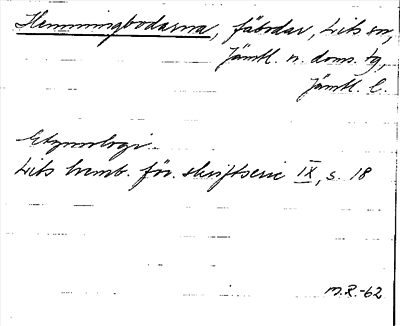 Hemmingbodarna, fäbodar, Lits sn,
Jämtl. n. doms. tg,
Jämtl. l.
Etymologi.
Lits hemb. för. skriftserie IX, s. 18
M.R.-62